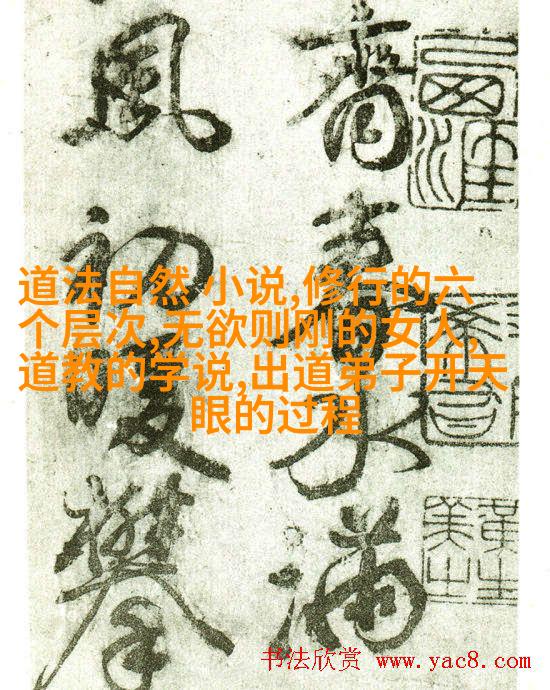 水滿
風初攀
道法自然 小说,修行的六
个层次,无欲则刚的女人,
道教的学说,出道弟子开天
眼的过程
书法欣赏 www.yac8.com